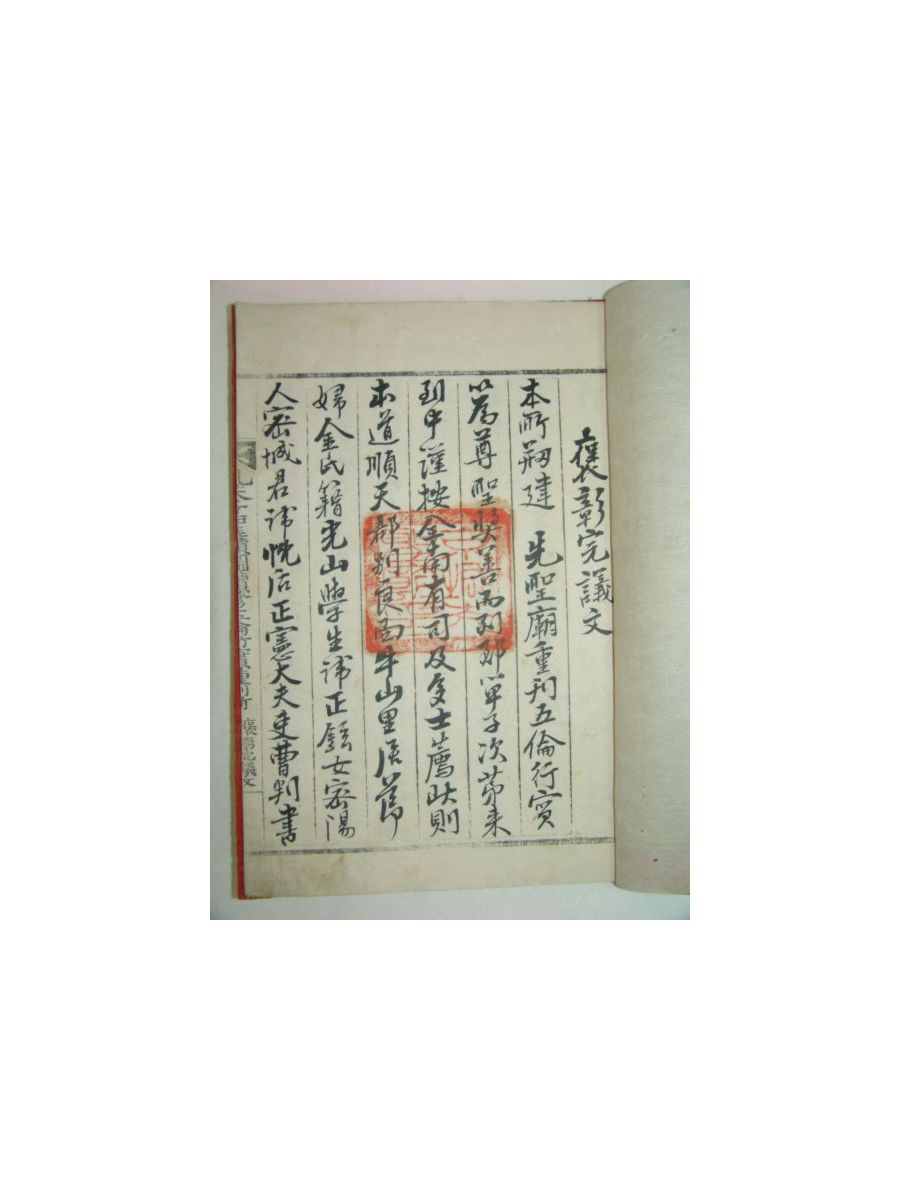 褒彰完議文
本所刱建 先聖廟重刊五倫行實
以爲尊聖奬善而列郡單子次第來
到中謹按全南有司及多士薦狀則
本道順天郡別良面牛山里居節
婦金氏籍光山學生諱正鉉女密陽
人密城君諱悅后正憲大夫吏曹判書
褒彰完議文